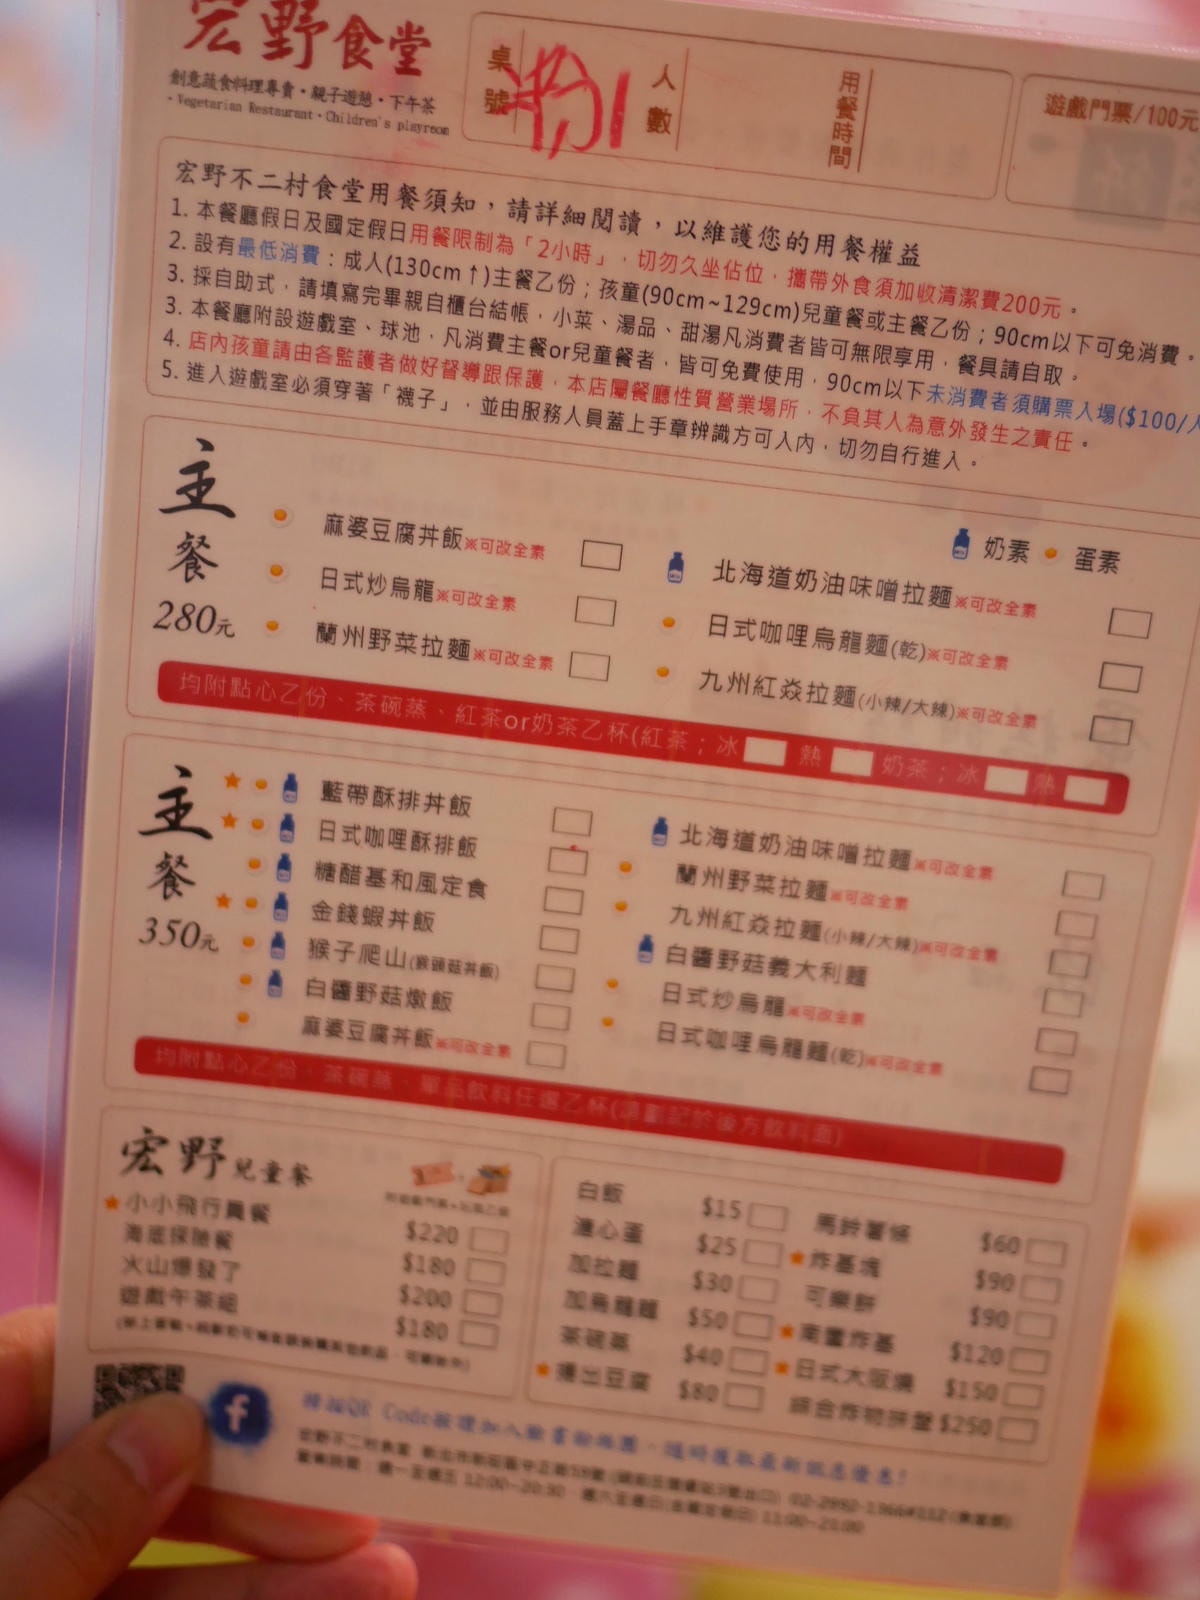 宏野食堂
創意蔬食料理專賣・親子遊憩・下午茶
・Vegetarian Restaurant・Children's playroom
桌號 粉1
人數
用餐時間
遊戲門票/100元
宏野不二村食堂用餐須知，請詳細閱讀，以維護您的用餐權益
1. 本餐廳假日及國定假日用餐限制為「2小時」，切勿久坐佔位，攜帶外食須加收清潔費200元。
2. 設有最低消費：成人(130cm↑)主餐乙份；孩童(90cm~129cm)兒童餐或主餐乙份；90cm以下可免消費。
3. 採自助式，請填寫完畢親自櫃台結帳，小菜、湯品、甜湯凡消費者皆可無限享用，餐具請自取。
3. 本餐廳附設遊戲室、球池，凡消費主餐or兒童餐者，皆可免費使用，90cm以下未消費者須購票入場($100/人
4. 店內孩童請由各監護者做好督導跟保護，本店屬餐廳性質營業場所，不負其人為意外發生之責任。
5. 進入遊戲室必須穿著「襪子」，並由服務人員蓋上手章辨識方可入內，切勿自行進入。
主餐 280元
奶素 蛋素
麻婆豆腐丼飯※可改全素
日式炒烏龍※可改全素
蘭州野菜拉麵※可改全素
北海道奶油味噌拉麵※可改全素
日式咖哩烏龍麵(乾)※可改全素
九州紅焱拉麵(小辣/大辣)※可改全素
均附點心乙份、茶碗蒸、紅茶or奶茶乙杯(紅茶；冰 熱 奶茶；冰 熱
主餐 350元
藍帶酥排丼飯
日式咖哩酥排飯
糖醋基和風定食
金錢蝦丼飯
猴子爬山(猴頭菇丼飯)
白醬野菇燉飯
麻婆豆腐丼飯※可改全素
北海道奶油味噌拉麵※可改全素
蘭州野菜拉麵※可改全素
九州紅焱拉麵(小辣/大辣)※可改全素
白醬野菇義大利麵
日式炒烏龍※可改全素
日式咖哩烏龍麵(乾)※可改全素
均附點心乙份、茶碗蒸、單品飲料任選乙杯(請劃記於後方飲料面)
宏野兒童餐
小小飛行員餐 $220
海底探險餐 $180
火山爆發了 $200
遊戲午茶組 $180
白飯 $15
溏心蛋 $25
加拉麵 $30
加烏龍麵 $50
茶碗蒸 $40
揚出豆腐 $80
馬鈴薯條 $60
炸基塊 $90
可樂餅 $90
南蠻炸基 $120
日式大阪燒 $150
綜合炸物拼盤 $250
掃描QR Code按讚加入臉書粉絲團，隨時獲取最新訊息優惠!
12:00~20:30
11:00~21:00